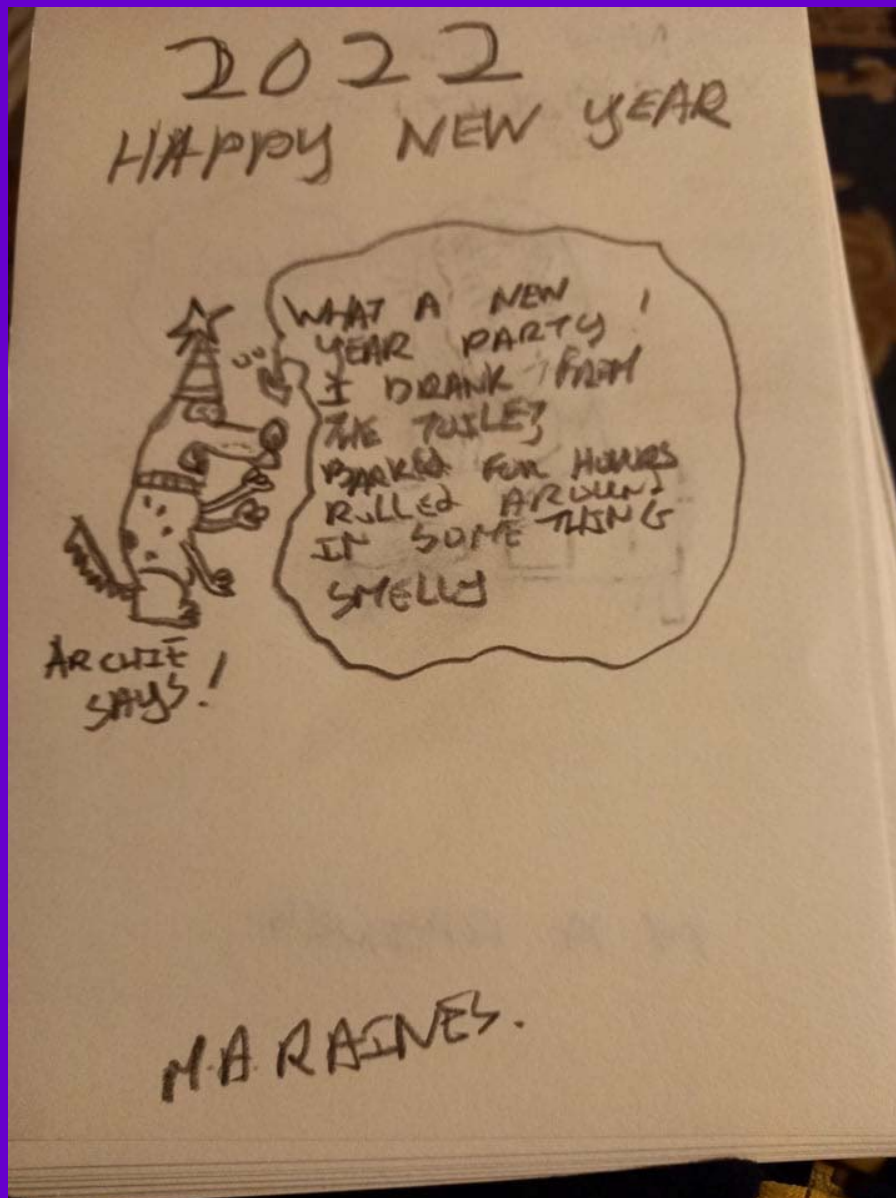 2022
HAPPY NEW YEAR
WHAT A NEW
YEAR PARTY!
I DRANK FROM
THE TOILET
BARKED FOR HOURS
ROLLED AROUND
IN SOME THING
SMELLY
ARCHIE
SAYS!
M.A.RAINES.